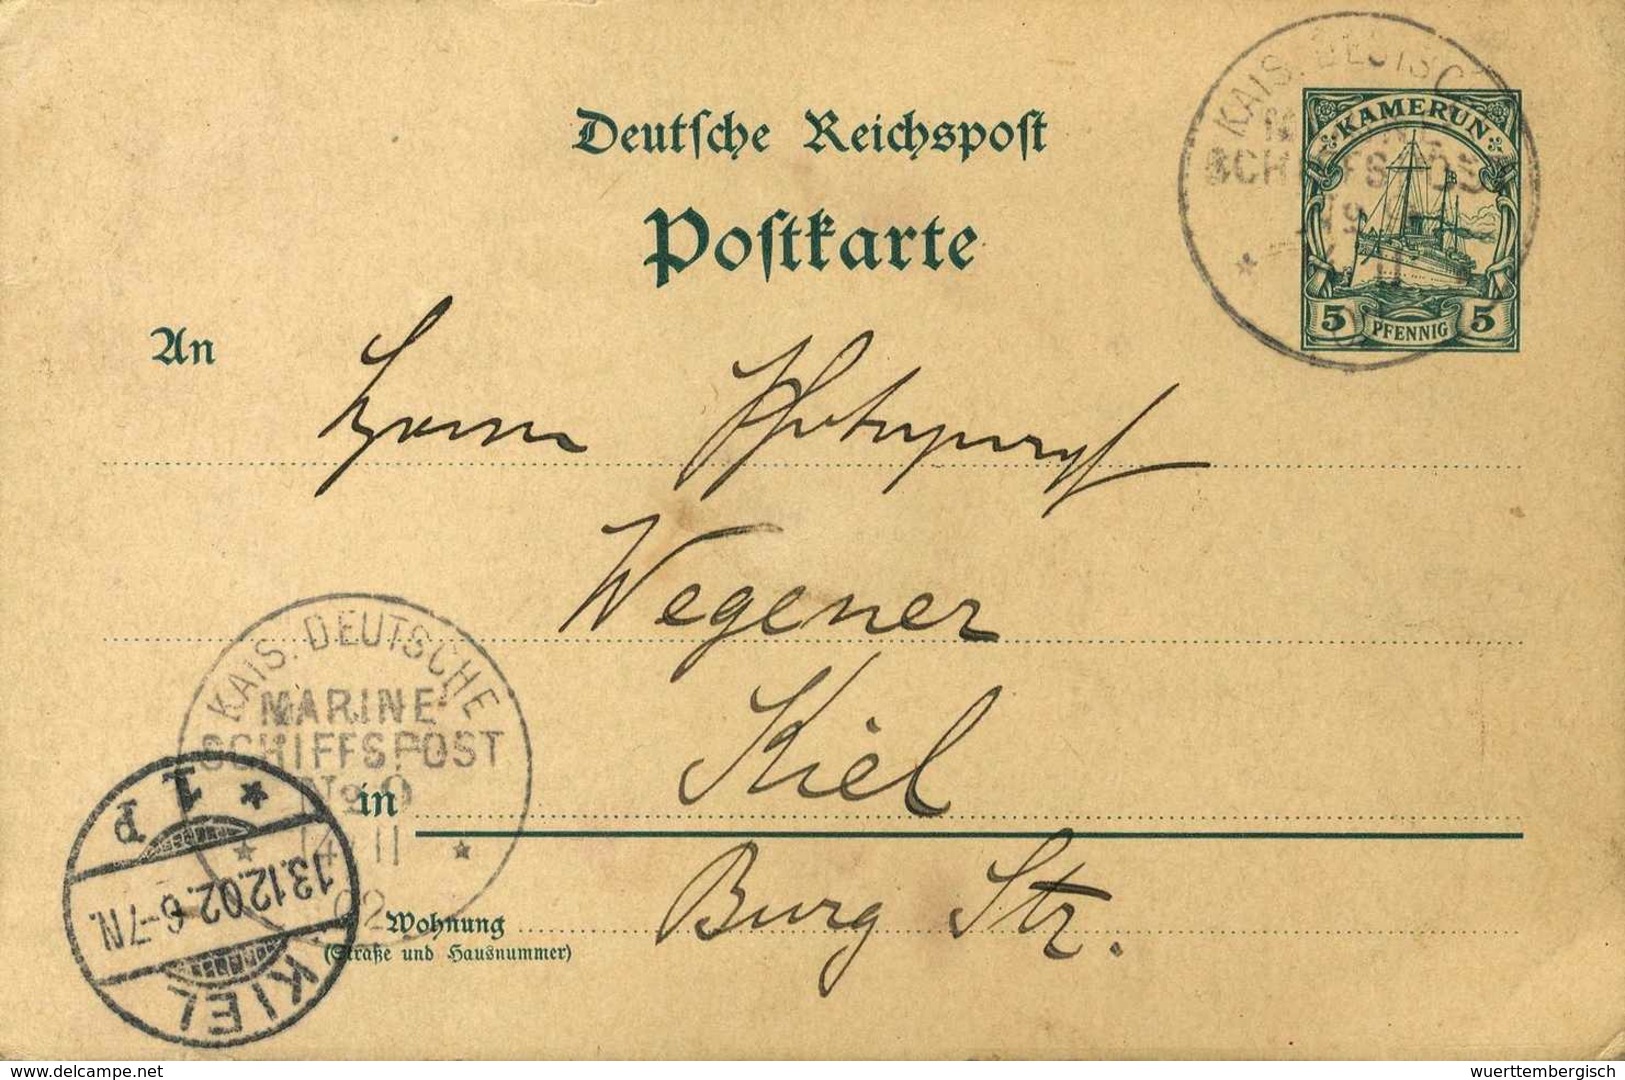 KAIS. DEUTSCHE
SCHIFFSPOST
KAMERUN
5 PFENNIG 5
Deutſche Reichspoſt
Poſtkarte
An
Herrn
Wegener
Kiel
in
Burg Str.
Wohnung
(Straße und Hausnummer)
KAIS. DEUTSCHE
MARINE
SCHIFFSPOST
No 9
14/11
02
KIEL
13.12.02. 6-7N.
1 P
delcampe.net
wuerttembergisch